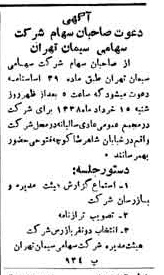 آگهی
دعوت صاحبان سهام شرکت
سهامی سیمان تهران
از صاحبان سهام شرکت سهامی
سیمان تهران طبق ماده ۳۹ اساسنامه
دعوت میشود که ساعت ۵ بعد از ظهر روز
شنبه ۱۵ خرداد ماه ۱۳۳۸ برای شرکت
در مجمع عمومی عادی سالیانه در محل شرکت
واقع در خیابان شاهرضا کوچه فتوحی حضور
بهم رسانند
دستور جلسه:
۱- استماع گزارش هیئت مدیره و
بازرسان شرکت
۲- تصویب ترازنامه
۳- انتخاب دو نفر بازرس شرکت
هیئت مدیره شرکت سهامی سیمان تهران
ب ۹۳۴